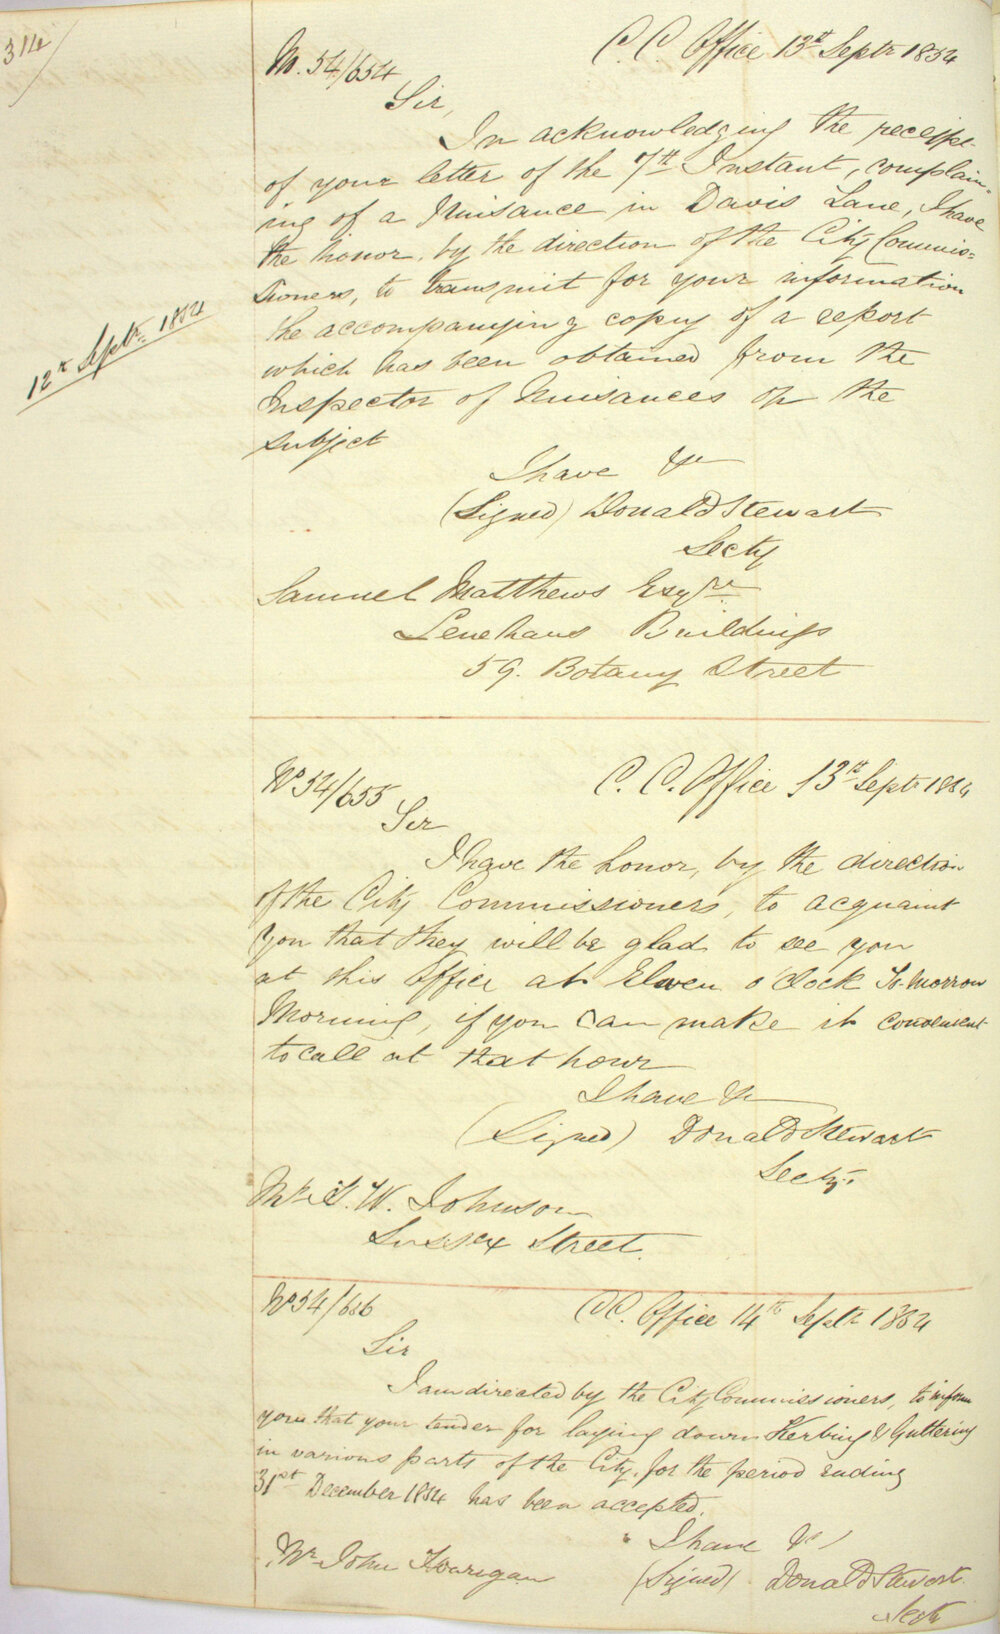 314
No. 54/654
C. C. Office 13th Septr 1854
Sir,
In acknowledging the receipt
of your letter of the 7th Instant, complain-
ing of a Nuisance in Davis Lane, I have
the honor, by the direction of the City Commis-
sioners, to transmit for your information
the accompanying copy of a report
which has been obtained from the
Inspector of Nuisances on the
subject
12th Septr. 1854
I have &c
(Signed) Donald Stewart
Secty
Samuel Matthews Esqre
Lenehans Buildings
59. Botany Street
No 54/655
C. C. Office 13th Septr 1854
Sir
I have the honor, by the direction
of the City Commissioners, to acquaint
you that they will be glad to see you
at this Office at Eleven o'clock To-morrow
Morning, if you can make it convenient
to call at that hour
I have &c
(Signed) Donald Stewart
Secty.
Mr. W. Johnson
Sussex Street.
No 54/656
CC. Office 14th Septr 1854
Sir
I am directed by the City Commissioners, to inform
you that your tender for laying down Kerbing & Guttering
in various parts of the City, for the period ending
31st December 1854 has been accepted.
I have &c
Mr John
(Signed) Donald Stewart
Secty